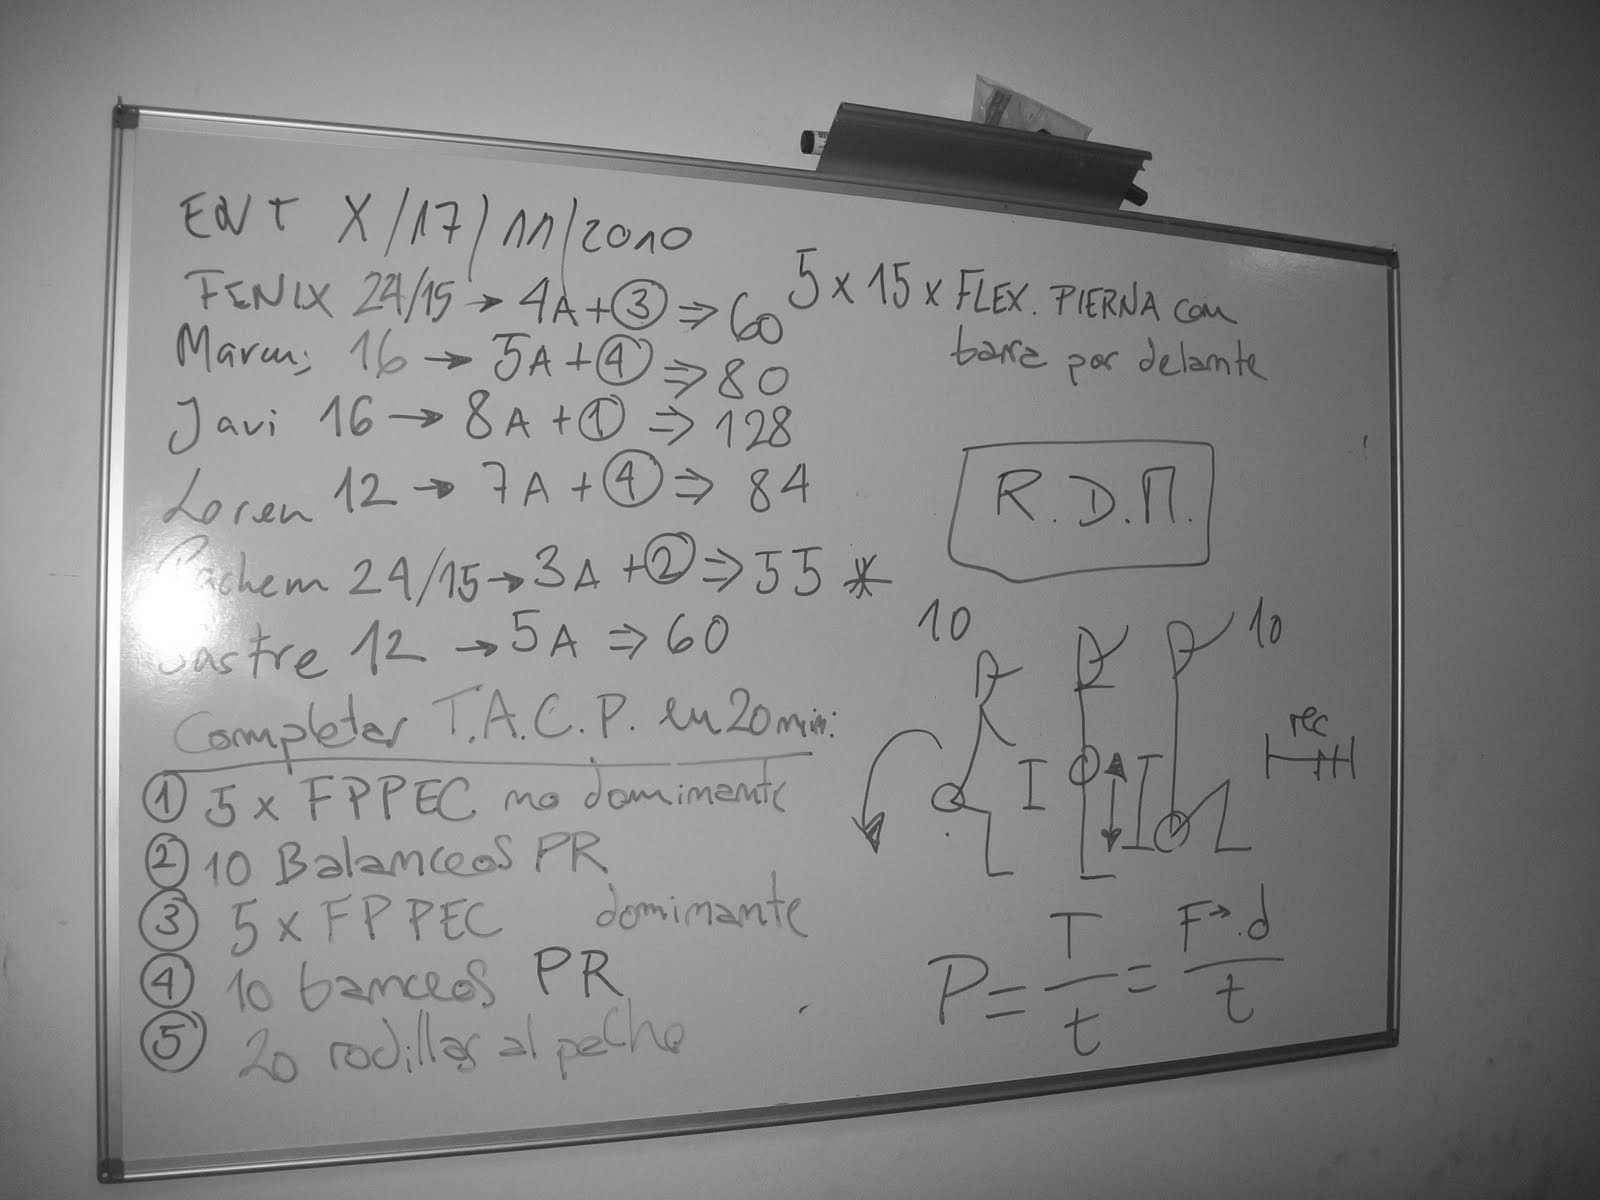 ENT X/17/11/2010
FENIX 24/15 → 4A + ③ ⇒ 60
Marcus 16 → 5A + ④ ⇒ 80
Javi 16 → 8A + ① ⇒ 128
Loren 12 → 7A + ④ ⇒ 84
Pachem 24/15 → 3A + ② ⇒ 55 *
Sastre 12 → 5A ⇒ 60
Completar T.A.C.P. en 20 min:
① 5 x FPPEC no dominante
② 10 Balanceos PR
③ 5 x FPPEC dominante
④ 10 banceos PR
⑤ 20 rodillas al pecho
5 x 15 x FLEX. PIERNA con
barra por delante
R.D.M.
10 10
rec
P = T/t = F→.d/t